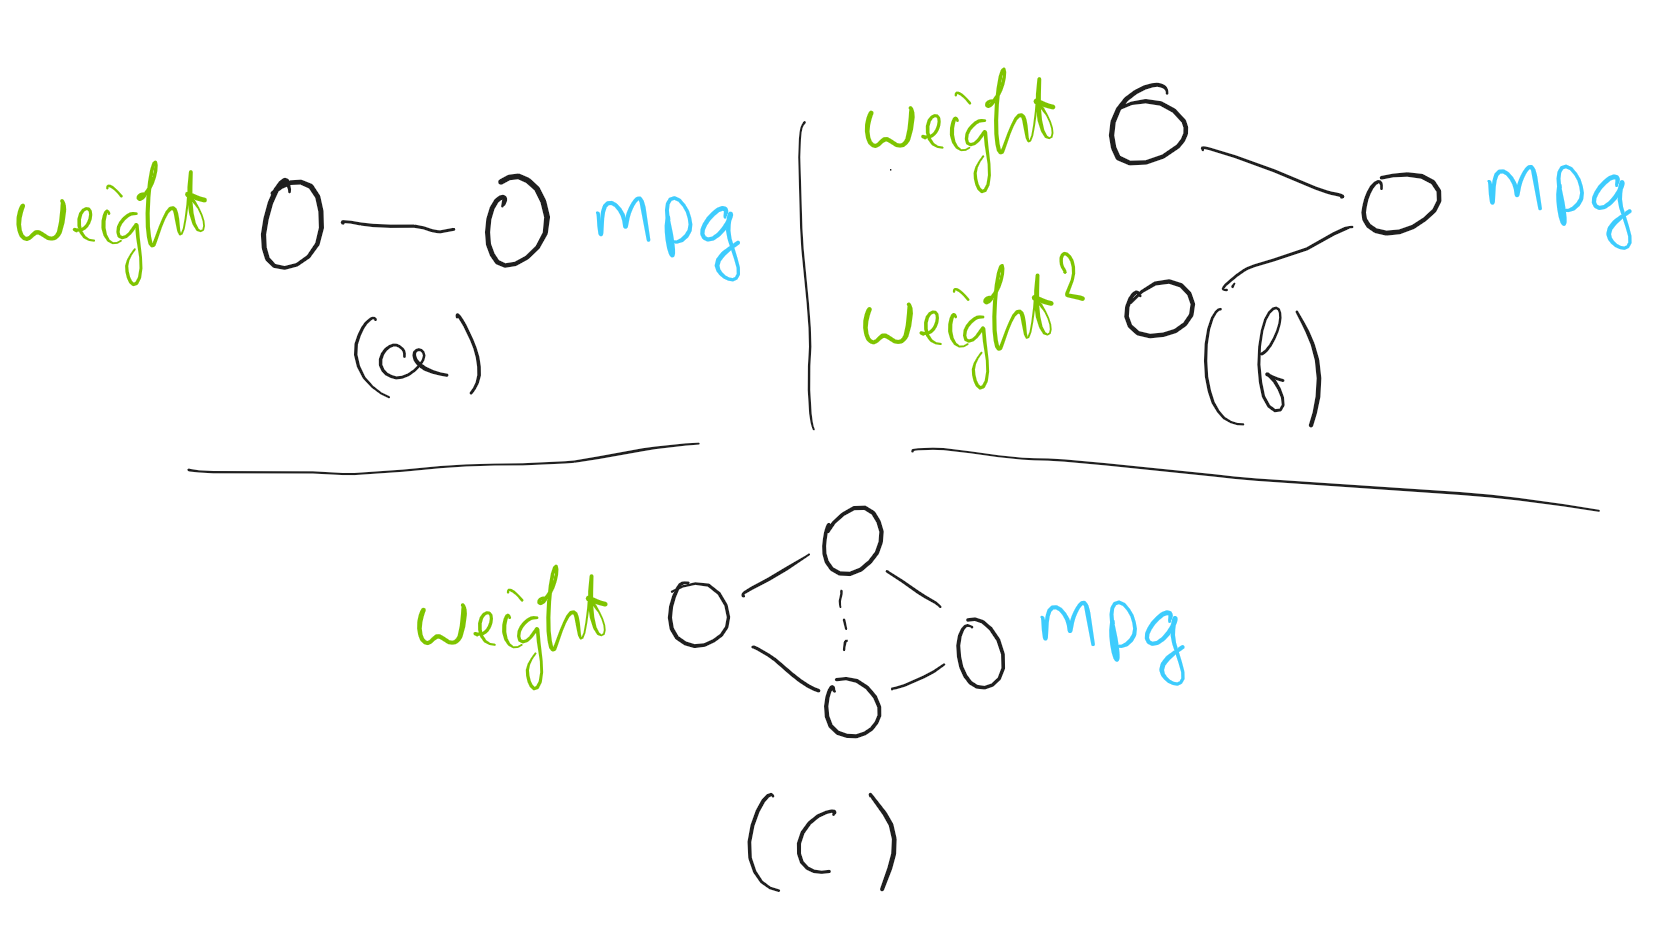 weight mpg
(a)
weight mpg
weight²
(b)
weight mpg
(c)